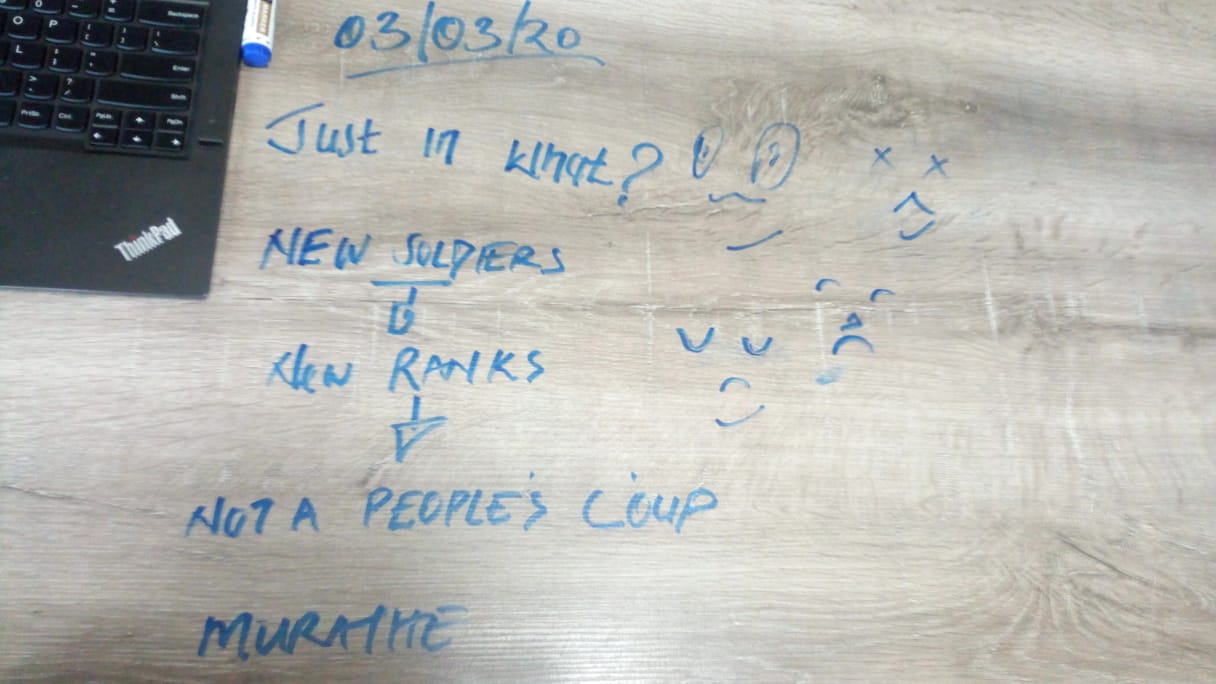 03/03/20
Just in what?
NEW SOLDIERS
New RANKS
NOT A PEOPLE'S COUP
MURATHE
ThinkPad
Backspace
Enter
Shift
O P
L
PrtSc Ctrl PgUp PgDn